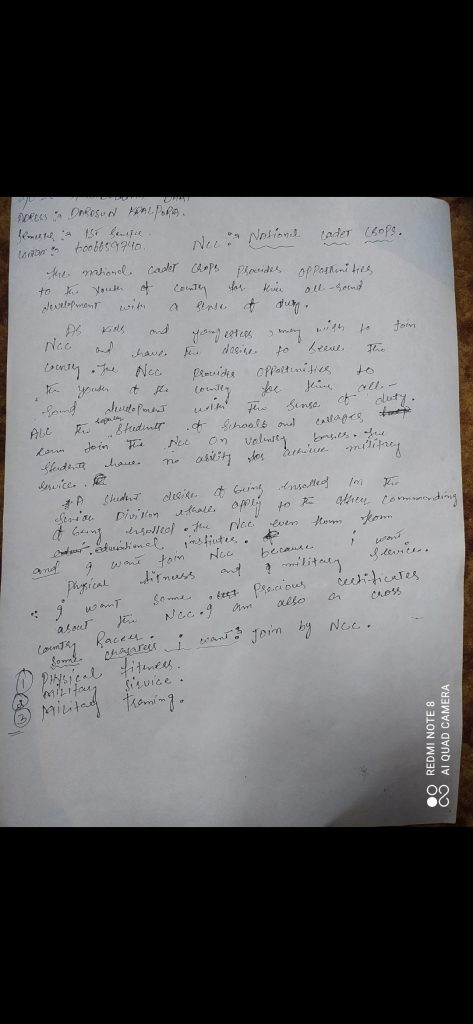 ADRESS :- DARDSUN KRALPORA.
Semester :- 1st Semester.
Contact :- 6006659940.
NCC :- National cadet Crops.
The national cadet Crops Provides opportunities
to the youth of country for their all-sound
development with a sense of duty.
As kids and youngesters, may wish to join
NCC and have the desire to serve the
country. The NCC Provides opportunities to
the youth of the country for their all-
sound development with the sense of duty.
All the regular students of schools and collages
can join the NCC on voluntry basies. The
students have no ability for active military
service.
A student desire of being enrolled in the
Senior Division shall apply to the officer commanding
of being enrolled. the NCC even from
educational institutes.
and I want join NCC because I want
Physical fitness and military service.
I want some Precious certificates
about the NCC. I am also a cross
country Racer.
Some chapters I want join by NCC.
1 Physical fitness.
2 Military Service.
3 Military Training.
REDMI NOTE 8
AI QUAD CAMERA